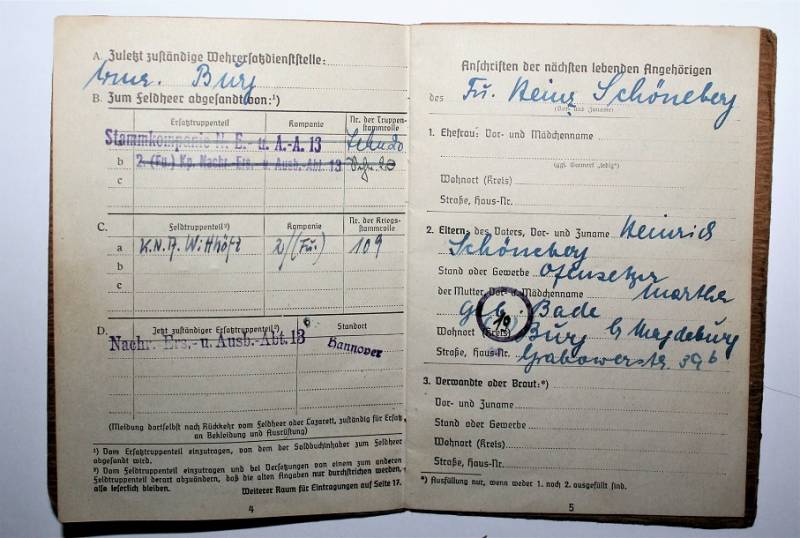 A. Zuletzt zuständige Wehrersatzdienststelle:
Burg
B. Zum Feldheer abgesandt von:¹)
Ersatztruppenteil Kompanie Nr. der Truppen-stammrolle
Stammkompanie N. E.- u. A.-A. 13
b 2. (Fu.) Kp. Nachr. Ers. u. Ausb.-Abt. 13
c
C. Feldtruppenteil²) Kompanie Nr. der Kriegs-stammrolle
a K.N.A. Witthöft 2/(Fu.) 109
b
c
D. Jetzt zuständiger Ersatztruppenteil²) Standort
Nachr. Ers.- u. Ausb.-Abt. 13 Hannover
(Meldung dortselbst nach Rückkehr vom Feldheer oder Lazarett, zuständig für Ersatz
an Bekleidung und Ausrüstung)
¹) Vom Ersatztruppenteil einzutragen, von dem der Soldbuchinhaber zum Feldheer
abgesandt wird.
²) Vom Feldtruppenteil einzutragen und bei Versetzungen von einem zum anderen
Feldtruppenteil derart abzuändern, daß die alten Angaben nur durchstrichen werden,
also leserlich bleiben.
Weiterer Raum für Eintragungen auf Seite 17.
4
Anschriften der nächsten lebenden Angehörigen
des Fu. Heinz Schöneberg
(Vor- und Zuname)
1. Ehefrau: Vor- und Mädchenname
(ggf. Vermerk „ledig")
Wohnort (Kreis)
Straße, Haus-Nr.
2. Eltern: des Vaters, Vor- und Zuname Heinrich
Schöneberg
Stand oder Gewerbe Ofensetzer
der Mutter, Vor- u. Mädchenname Martha
geb. Bade
10
Wohnort (Kreis) Burg b Magdeburg
Straße, Haus-Nr. Grabowerstr. 39b
3. Verwandte oder Braut:*)
Vor- und Zuname
Stand oder Gewerbe
Wohnort (Kreis)
Straße, Haus-Nr.
*) Ausfüllung nur, wenn weder 1. noch 2. ausgefüllt sind.
5